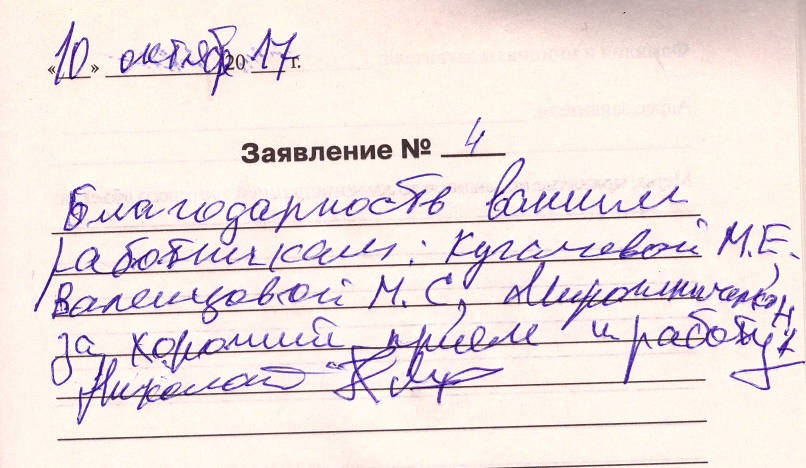 «10» октября 2017 г.
Заявление № 4
Благодарность вашим
работникам: Кугачевой М.Е,
Валенцовой М.С, Мирошниченко Н
за хороший прием и работу
Николай